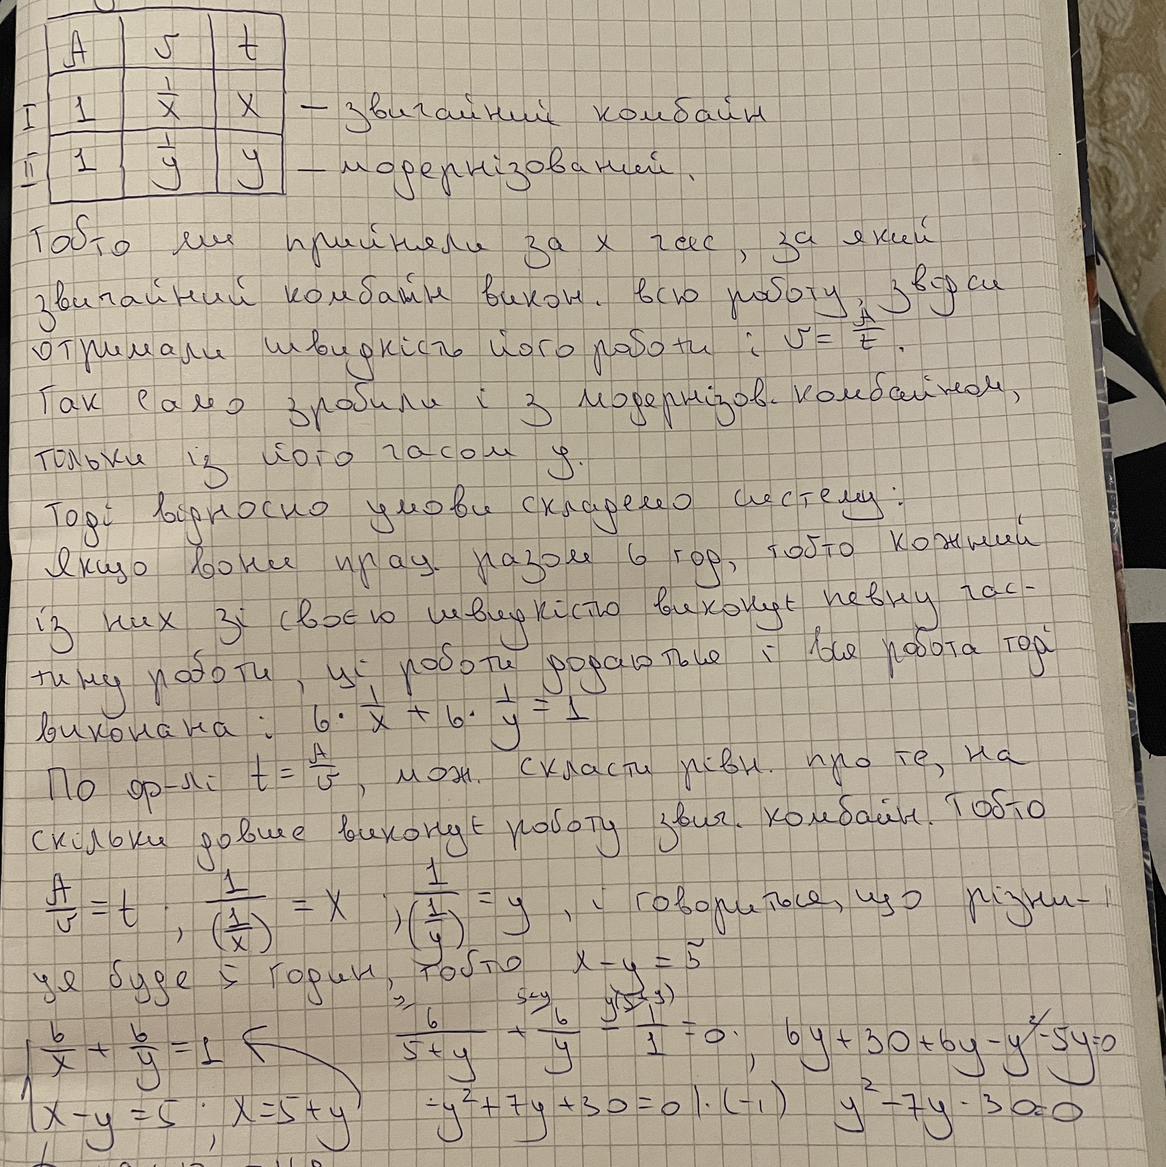 A v t
I 1 1/x x — звичайний комбайн
II 1 1/y y — модернізований.
Тобто ми прийняли за x час, за який
звичайний комбайн викон. всю роботу, звідси
отримали швидкість його роботи : v = A/t.
Так само зробили і з модернізов. комбайном,
тільки із його часом y.
Тоді відносно умови складемо систему:
Якщо вони прац. разом 6 год, тобто кожний
із них зі своєю швидкістю виконує певну час-
тину роботи, ці роботи додаються і вся робота тоді
виконана : 6 · 1/x + 6 · 1/y = 1
По ф-лі t = A/v, мож. скласти рівн. про те, на
скільки довше виконує роботу звич. комбайн. Тобто
A/v = t ; 1/(1/x) = x ; 1/(1/y) = y , і говориться, що різни-
ця буде 5 годин, тобто x - y = 5
6/x + 6/y = 1 6/(5+y) + 6/y - 1/1 = 0 ; 6y + 30 + 6y - y² - 5y = 0
x - y = 5 ; x = 5 + y -y² + 7y + 30 = 0 | · (-1) y² - 7y - 30 = 0